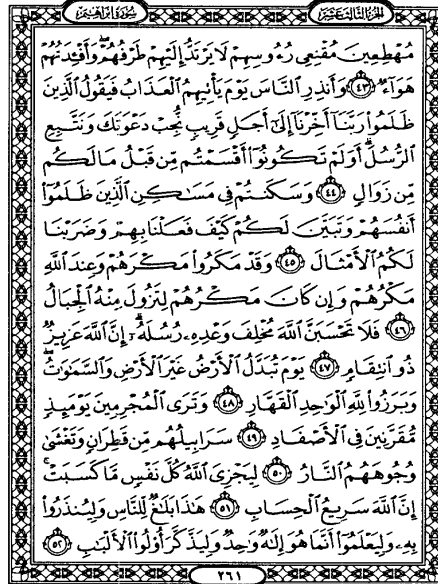 سورة إبراهيم
الجزء الثالث عشر
مُهْطِعِينَ مُقْنِعِى رُءُوسِهِمْ لَا يَرْتَدُّ إِلَيْهِمْ طَرْفُهُمْ ۖ وَأَفْـِٔدَتُهُمْ
هَوَآءٌ ﴿٤٣﴾ وَأَنذِرِ ٱلنَّاسَ يَوْمَ يَأْتِيهِمُ ٱلْعَذَابُ فَيَقُولُ ٱلَّذِينَ
ظَلَمُوا۟ رَبَّنَآ أَخِّرْنَآ إِلَىٰٓ أَجَلٍ قَرِيبٍ نُّجِبْ دَعْوَتَكَ وَنَتَّبِعِ
ٱلرُّسُلَ ۗ أَوَلَمْ تَكُونُوٓا۟ أَقْسَمْتُم مِّن قَبْلُ مَا لَكُم
مِّن زَوَالٍ ﴿٤٤﴾ وَسَكَنتُمْ فِى مَسَـٰكِنِ ٱلَّذِينَ ظَلَمُوٓا۟
أَنفُسَهُمْ وَتَبَيَّنَ لَكُمْ كَيْفَ فَعَلْنَا بِهِمْ وَضَرَبْنَا
لَكُمُ ٱلْأَمْثَالَ ﴿٤٥﴾ وَقَدْ مَكَرُوا۟ مَكْرَهُمْ وَعِندَ ٱللَّهِ
مَكْرُهُمْ وَإِن كَانَ مَكْرُهُمْ لِتَزُولَ مِنْهُ ٱلْجِبَالُ
﴿٤٦﴾ فَلَا تَحْسَبَنَّ ٱللَّهَ مُخْلِفَ وَعْدِهِۦ رُسُلَهُۥٓ ۗ إِنَّ ٱللَّهَ عَزِيزٌ
ذُو ٱنتِقَامٍ ﴿٤٧﴾ يَوْمَ تُبَدَّلُ ٱلْأَرْضُ غَيْرَ ٱلْأَرْضِ وَٱلسَّمَـٰوَٰتُ ۖ
وَبَرَزُوا۟ لِلَّهِ ٱلْوَٰحِدِ ٱلْقَهَّارِ ﴿٤٨﴾ وَتَرَى ٱلْمُجْرِمِينَ يَوْمَئِذٍ
مُّقَرَّنِينَ فِى ٱلْأَصْفَادِ ﴿٤٩﴾ سَرَابِيلُهُم مِّن قَطِرَانٍ وَتَغْشَىٰ
وُجُوهَهُمُ ٱلنَّارُ ﴿٥٠﴾ لِيَجْزِىَ ٱللَّهُ كُلَّ نَفْسٍ مَّا كَسَبَتْ ۚ
إِنَّ ٱللَّهَ سَرِيعُ ٱلْحِسَابِ ﴿٥١﴾ هَـٰذَا بَلَـٰغٌ لِّلنَّاسِ وَلِيُنذَرُوا۟
بِهِۦ وَلِيَعْلَمُوٓا۟ أَنَّمَا هُوَ إِلَـٰهٌ وَٰحِدٌ وَلِيَذَّكَّرَ أُو۟لُوا۟ ٱلْأَلْبَـٰبِ ﴿٥٢﴾
٢٦١